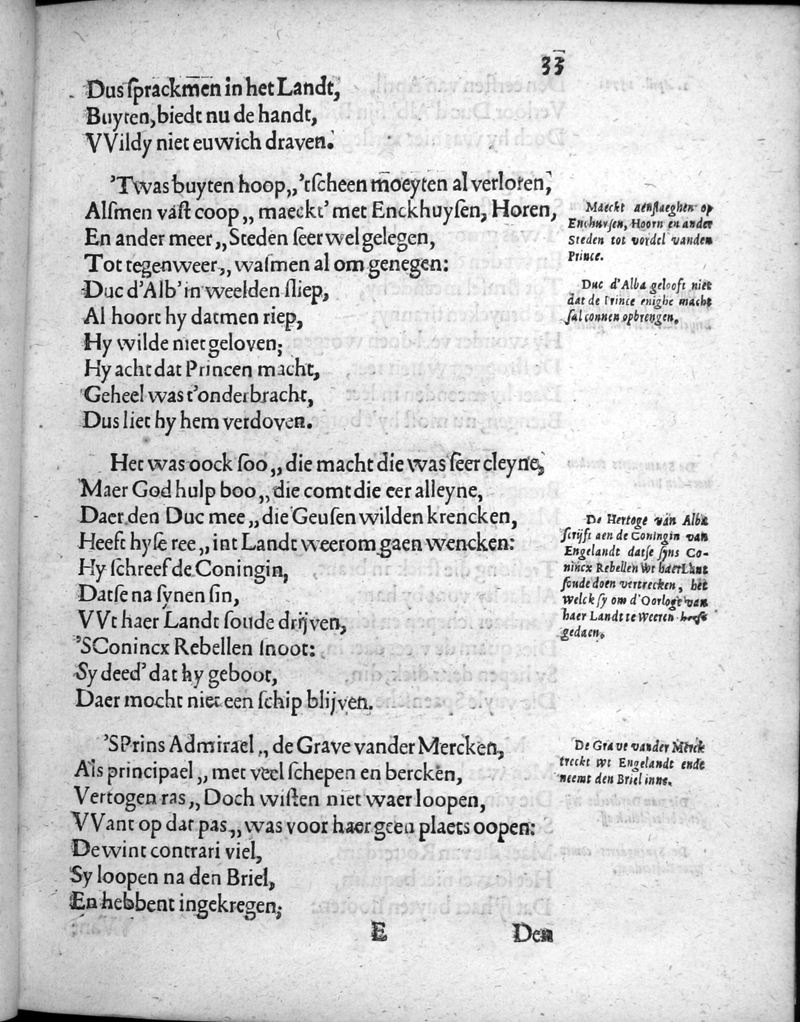 33
Dus ſprackmen in het Landt,
Buyten, biedt nu de handt,
VVildy niet euwich draven.
'Twas buyten hoop,, 'tſcheen moeyten al verloren,
Alſmen vaſt coop,, maeckt' met Enckhuyſen, Horen,
En ander meer,, Steden ſeer wel gelegen,
Tot tegenweer,, waſmen al om genegen:
Duc d'Alb' in weelden ſliep,
Al hoort hy datmen riep,
Hy wilde niet geloven;
Hy acht dat Princen macht,
Geheel was t'onderbracht,
Dus liet hy hem verdoven.
Maeckt aenſlaeghen op
Enchuyſen, Hoorn en ander
Steden tot vordel vanden
Prince.
Duc d'Alba gelooft niet
dat de Prince enighe macht
ſal connen opbrengen.
Het was oock ſoo,, die macht die was ſeer cleyne,
Maer God hulp boo,, die comt die eer alleyne,
Daer den Duc mee,, die Geuſen wilden krencken,
Heeft hy ſe ree,, int Landt weerom gaen wencken:
Hy ſchreef de Coningin,
Datſe na ſynen ſin,
VVt haer Landt ſoude drijven,
'SConincx Rebellen ſnoot:
Sy deed' dat hy geboot,
Daer mocht niet een ſchip blijven.
De Hertoge van Alba
ſcrijft aen de Coningin van
Engelandt datſe ſijns Co-
nincx Rebellen wt haer Lant
ſoude doen vertrecken, het
welck ſy om d'Oorloge van
haer Landt te weeren heeft
gedaen.
'SPrins Admirael,, de Grave vander Mercken,
Als principael,, met veel ſchepen en bercken,
Vertogen ras,, Doch wiſten niet waer loopen,
VVant op dat pas,, was voor haer geen plaets oopen:
De wint contrari viel,
Sy loopen na den Briel,
En hebbent ingekregen;
De Grave vander Merck
treckt wt Engelandt ende
neemt den Briel inne.
E
Den